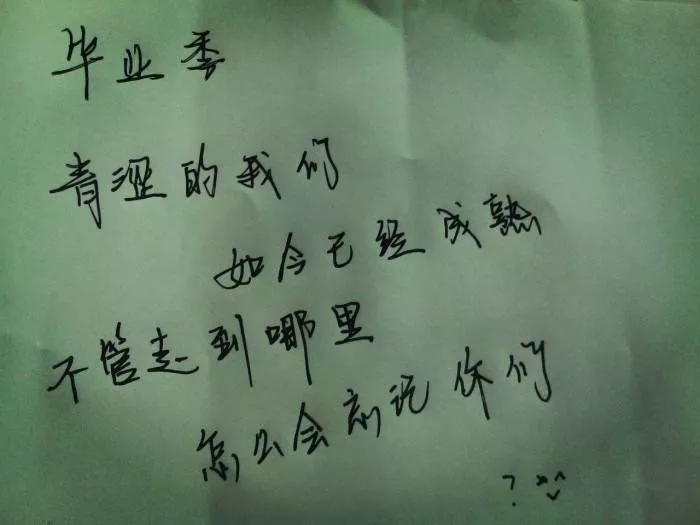 毕业季
青涩的我们
如今已经成熟
不管走到哪里
怎么会忘记你们
? ^ˇ^